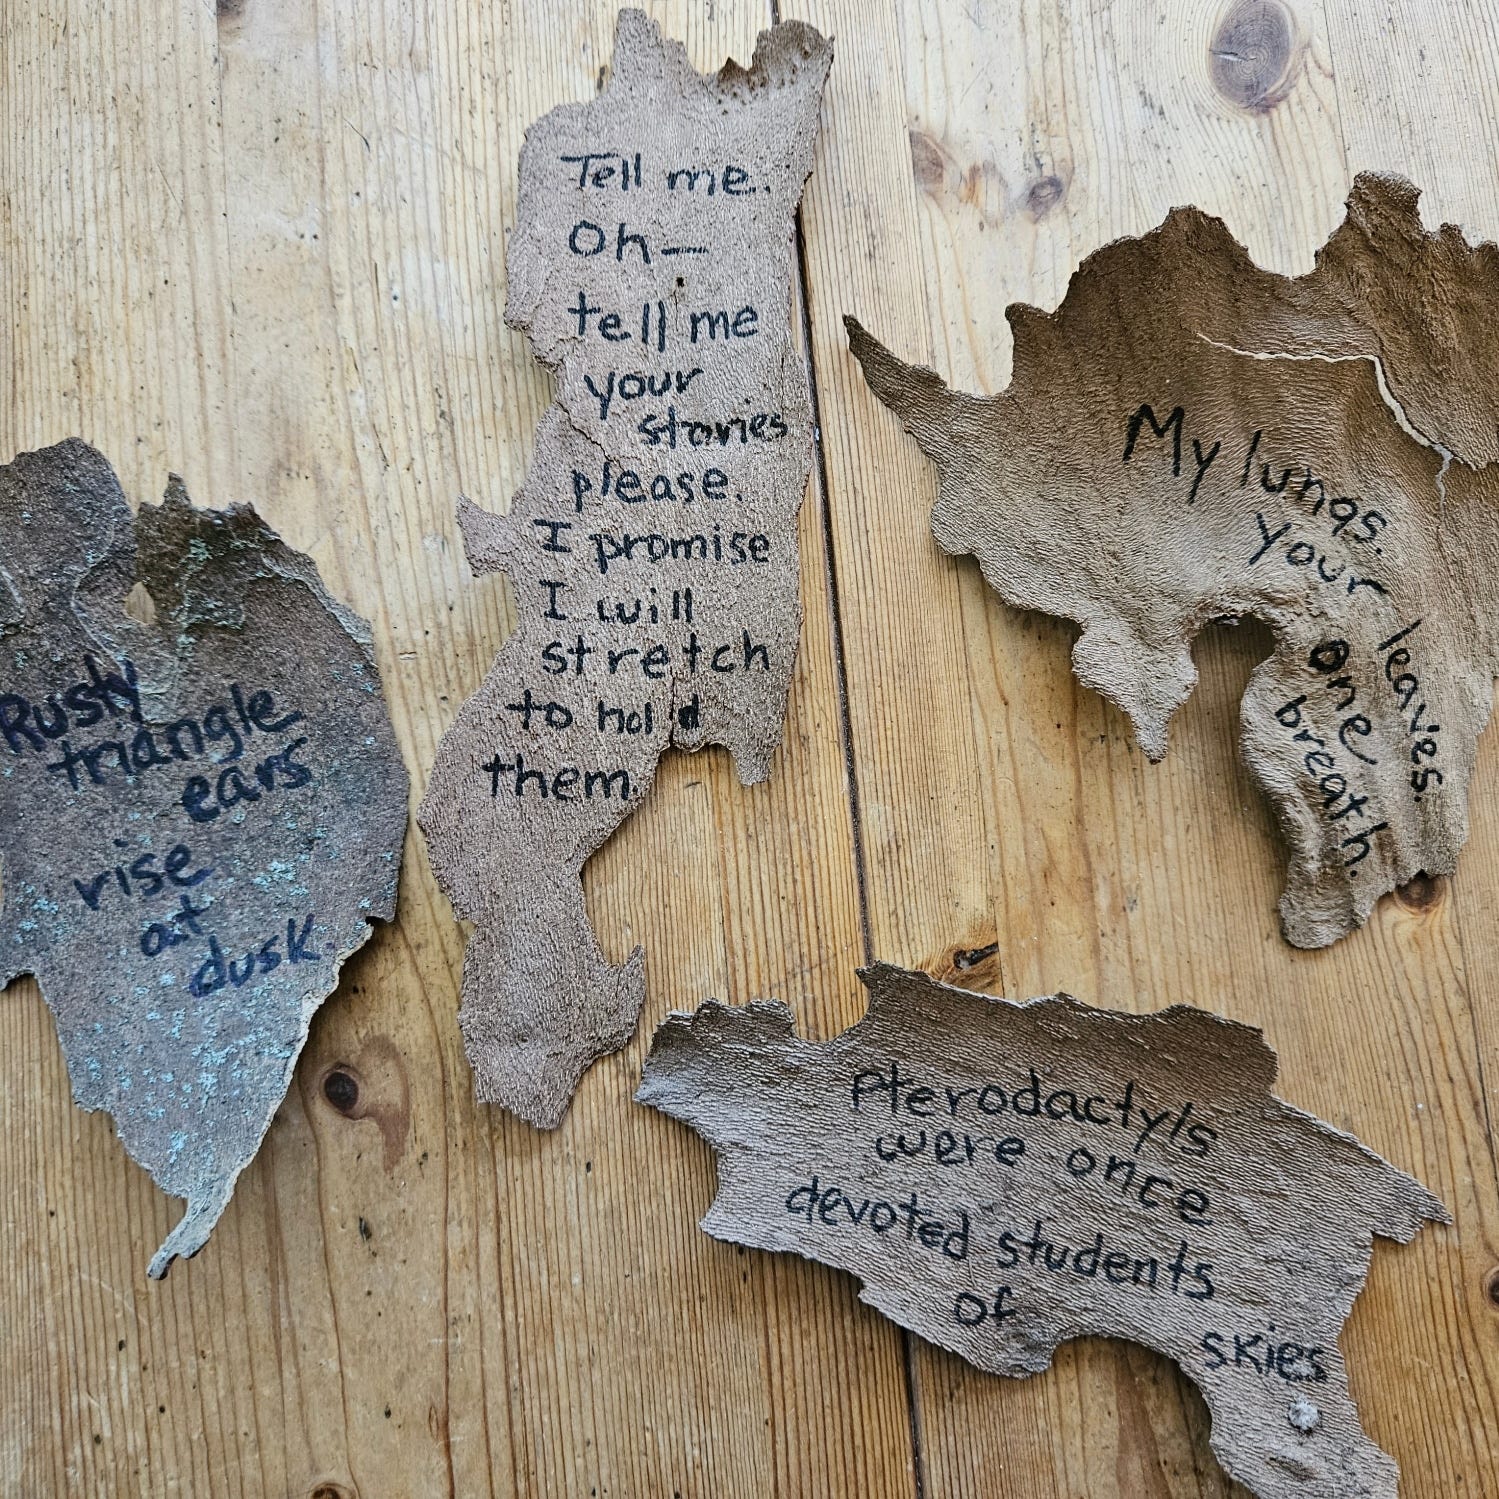 Rusty
triangle
ears
rise
at
dusk.
Tell me.
Oh—
tell me
your
stories
please.
I promise
I will
stretch
to hold
them.
My lungs.
Your leaves.
One
breath.
Pterodactyls
were once
devoted students
of skies